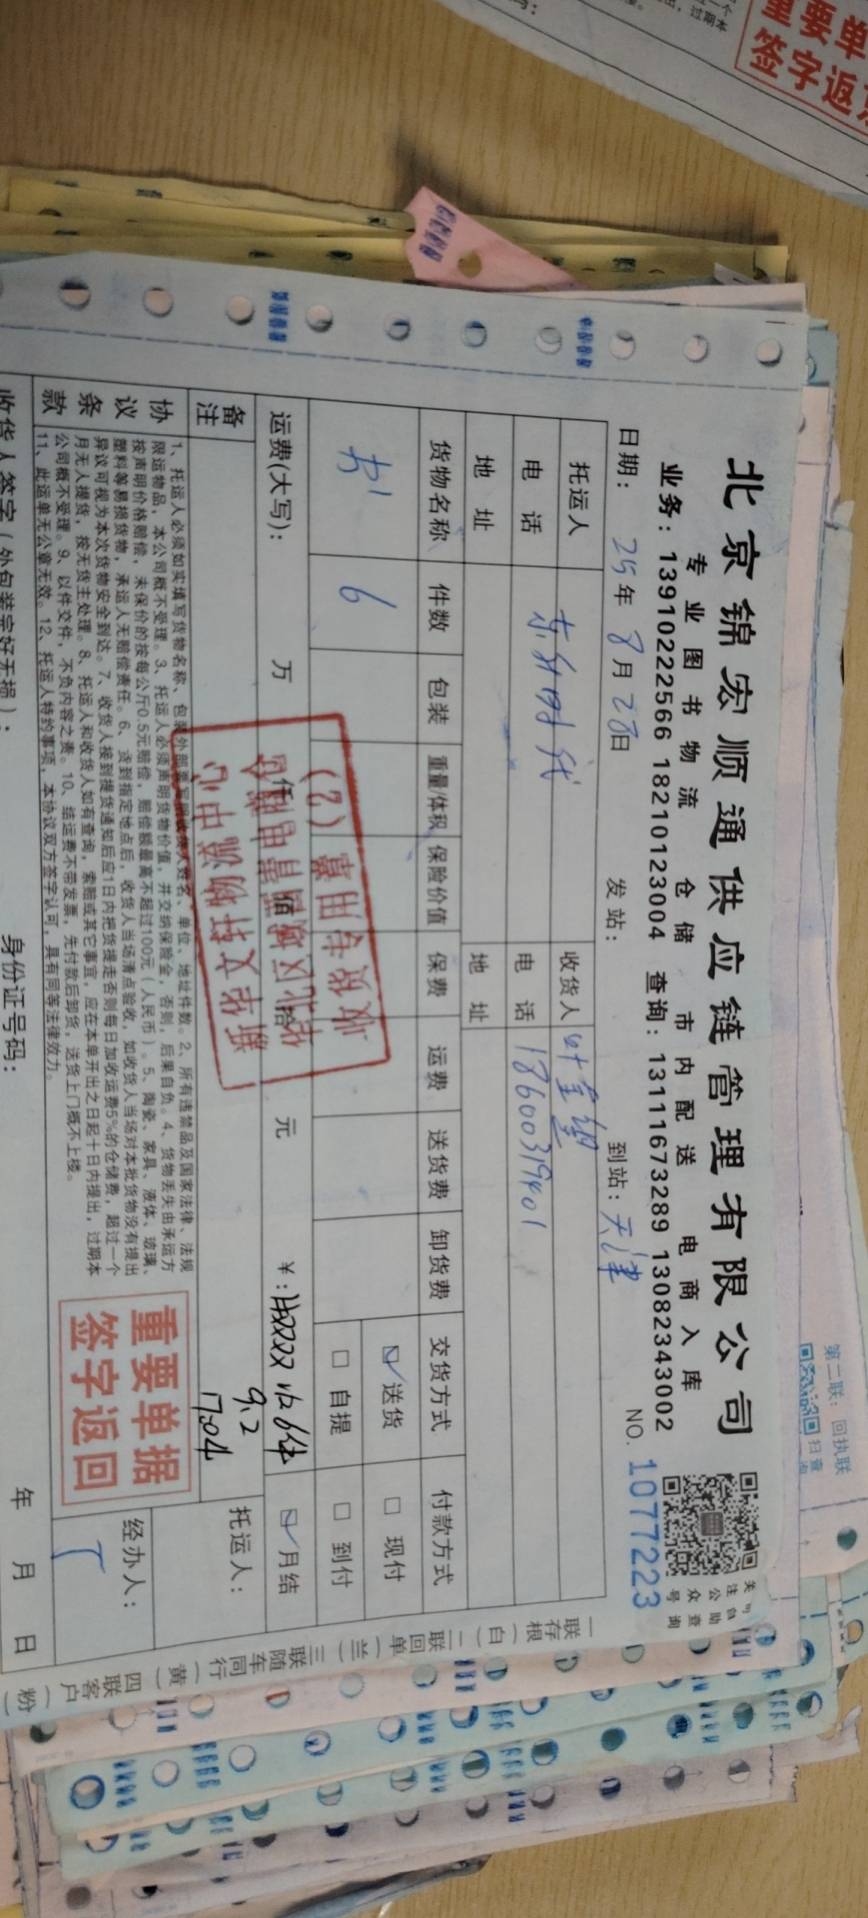 北京锦宏顺通供应链管理有限公司
专业图书物流 仓储 市内配送 电商入库
业务：13910222566 18210123004 查询：13111673289 13082343002
日期：25年8月28日 发站： 到站：天津 NO. 1077223
托运人 东升时代 收货人
电话 电话 18600319401
地址 地址
货物名称 件数 包装 重量/体积 保险价值 保费 运费 送货费 卸货费 交货方式 付款方式
书 6 ☑送货 □现付
□自提 □到付
运费(大写)： 万 仟 佰 拾 元 ¥： ☑月结
备注 9.2 17:04 托运人：
协议条款
1、托运人必须如实填写货物名称、包装外部要写明收货人姓名、单位、地址件数。2、所有违禁品及国家法律、法规
限运物品，本公司概不受理。3、托运人必须声明货物价值，并交纳保险金，否则，后果自负。4、货物丢失由承运方
按声明价格赔偿，未保价的按每公斤0.5元赔偿，赔偿额最高不超过100元（人民币）。5、陶瓷、家具、液体、玻璃、
塑料等易损货物，承运人无赔偿责任。6、货到指定地点后，收货人当场清点验收，如收货人当场对本批货物没有提出
异议可视为本次货物安全到达。7、收货人接到提货通知后应1日内把货提走否则每日加收运费5%的仓储费，超过一个
月无人提货，按无货主处理。8、托运人和收货人如有查询，索赔或其它事宜，应在本单开出之日起十日内提出，过期本
公司概不受理。9、以件交件，不负内容之责。10、结运费不带发票，先付款后卸货，送货上门概不上楼。
11、此运单无公章无效。12、托运人特约事项，本协议双方签字认可，具有同等法律效力。
重要单据
签字返回
经办人：
收货人签字（外包装完好无损）： 身份证号码： 年 月 日
收货专用章
（2）
一联存根（白） 二联回单（兰） 三联随车同行（黄） 四联客户（粉）
第二联：回执联
扫查
重要单
签字返